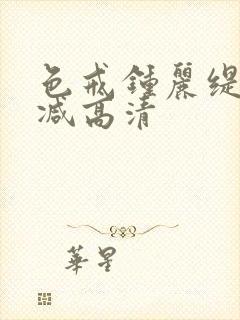 色戒鍾麗缇
减高清
華星